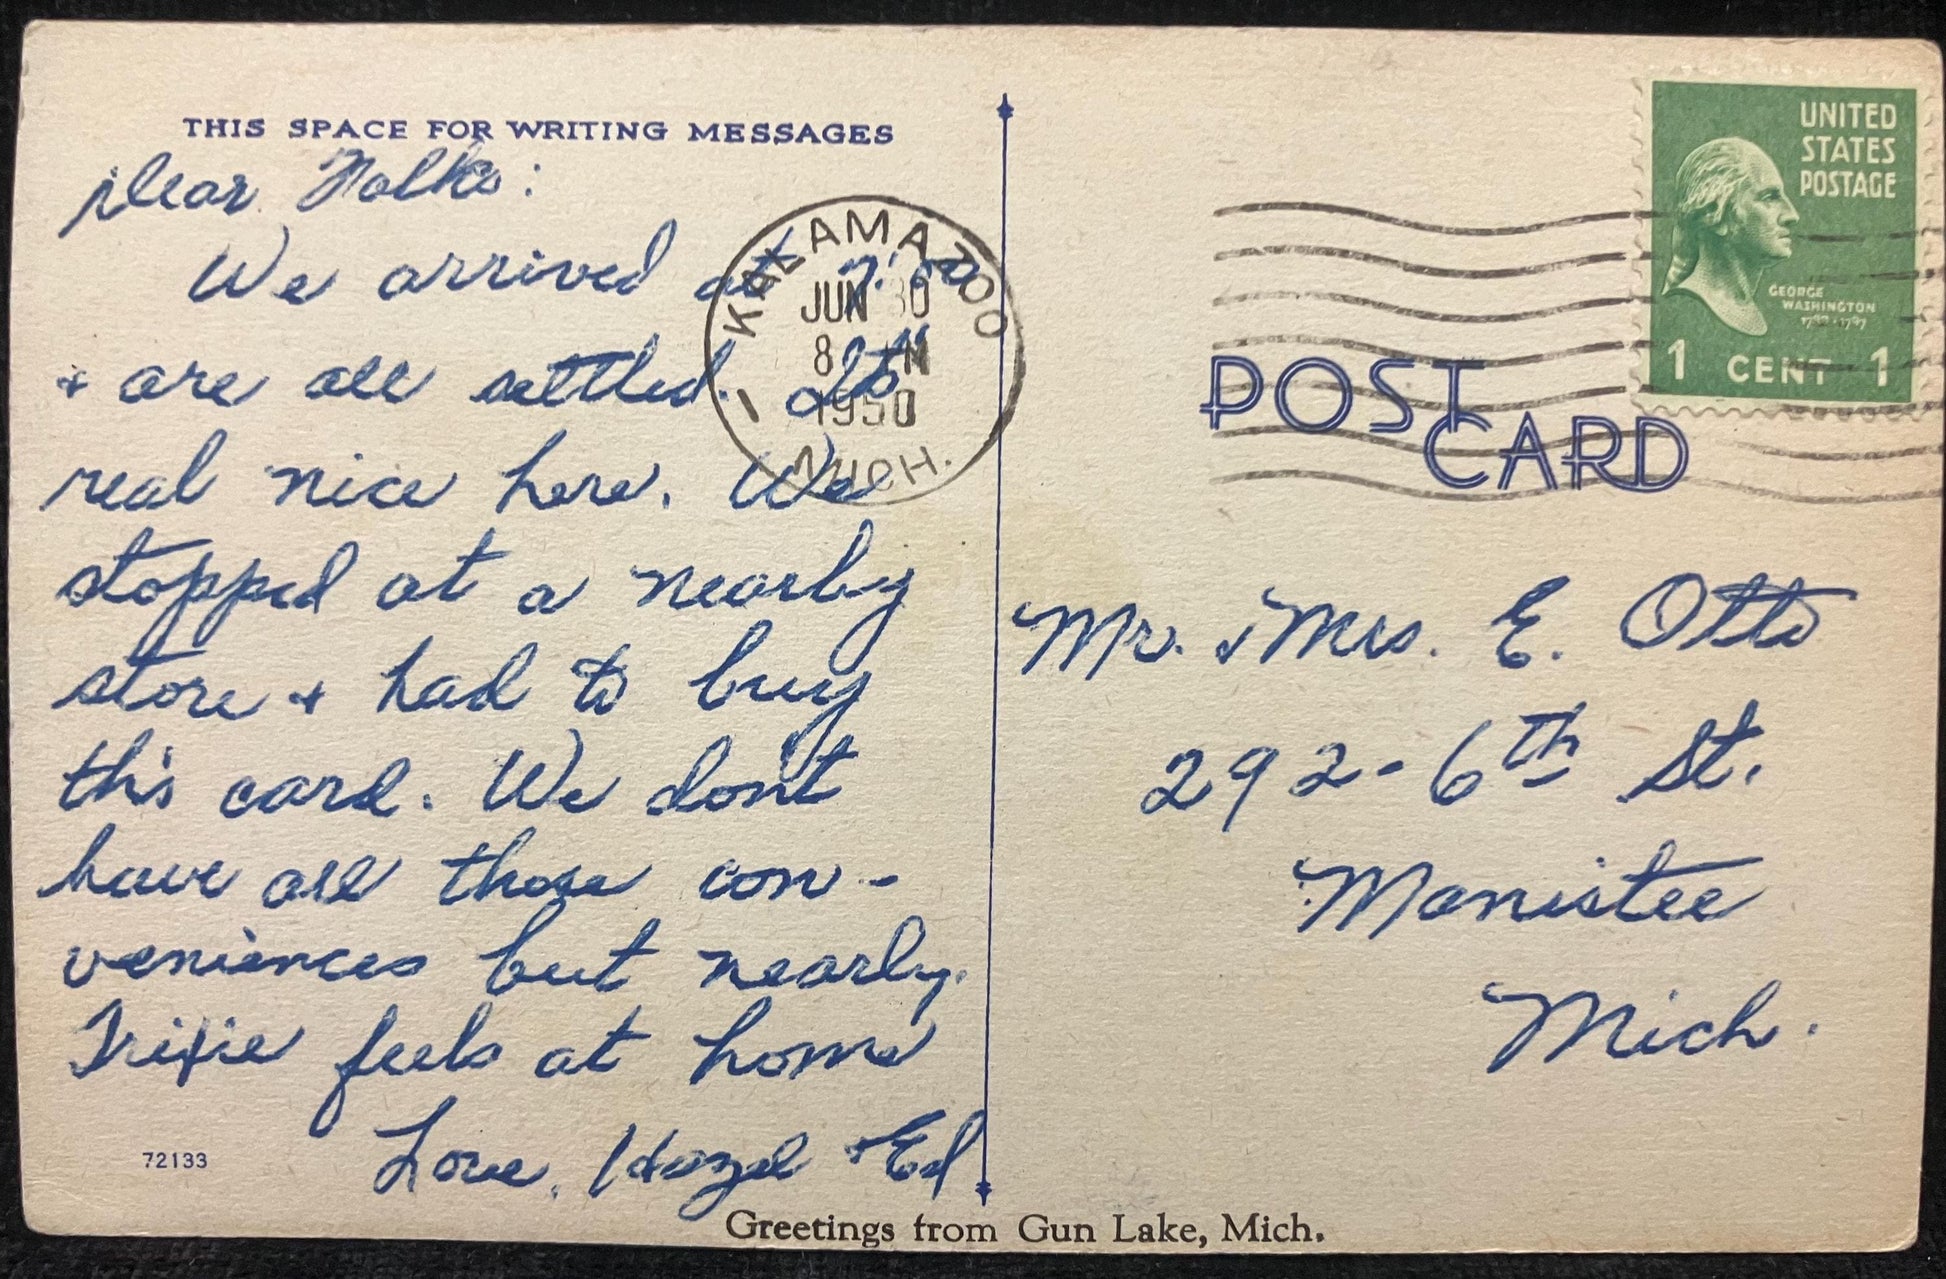 THIS SPACE FOR WRITING MESSAGES
Dear Folks:
We arrived at 7:00
+ are all settled. It's
real nice here. We
stopped at a nearby
store + had to buy
this card. We don't
have all those con-
veniences but nearly.
Trixie feels at home
Love, Hazel + Ed
72133
KALAMAZOO
JUN 30
8
1950
1
MICH.
UNITED
STATES
POSTAGE
GEORGE
WASHINGTON
1 CENT 1
POST
CARD
Mr. + Mrs. E. Otto
292-6th St.
Manistee
Mich.
Greetings from Gun Lake, Mich.